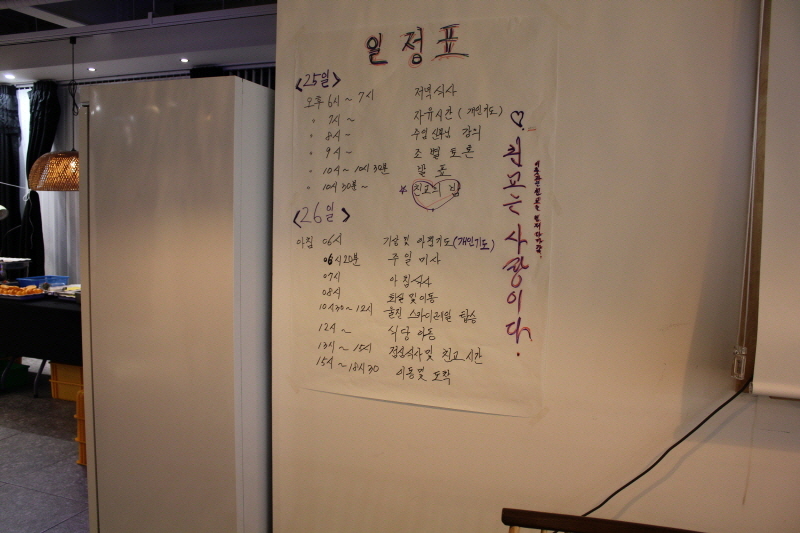 일정표
<25일>
오후 6시 ~ 7시 저녁식사
" 7시 ~ 자유시간 (개인기도)
" 8시 ~ 주임신부님 강의
" 9시 ~ 조별 토론
" 10시 ~ 10시 30분 발표
" 10시 30분 ~ ☆ 친교의 밤
<26일>
아침 06시 기상 및 아침기도 (개인기도)
06시 20분 주일 미사
07시 아침식사
08시 화실 및 이동
10시 30 ~ 12시 울진 스카이레일 탑승
12시 ~ 식당 이동
13시 ~ 15시 점심식사 및 친교시간
15시 ~ 18시 30 이동 및 도착
♡친교는 사랑이다.